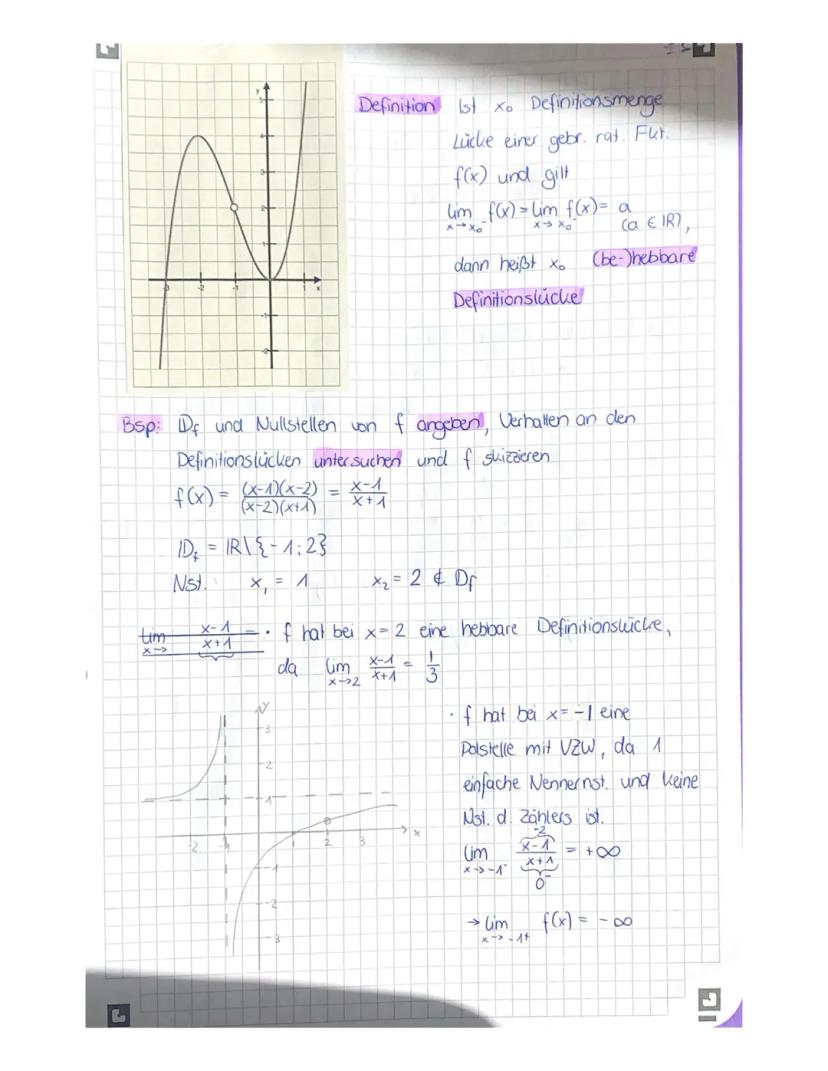 Definition Ist x₀ Definitionsmenge
Lücke einer gebr. rat. Fkt.
f(x) und gilt
lim f(x) = lim f(x) = a
x→x₀⁻ x→x₀ (a ∈ ℝ),
dann heißt x₀ (be-)hebbare
Definitionslücke
y
5
4
3
2
1
-3 -2 -1 1 x
-1
-2
Bsp: D_f und Nullstellen von f angeben, Verhalten an den
Definitionslücken untersuchen und f skizzieren
f(x) = (x-1)(x-2)/(x-2)(x+1) = x-1/x+1
D_f = ℝ\{-1;2}
Nst.: x₁ = 1 x₂ = 2 ∉ D_f
lim x→ x-1/x+1 = · f hat bei x=2 eine hebbare Definitionslücke,
da lim x→2 x-1/x+1 = 1/3
· f hat bei x=-1 eine
Polstelle mit VZW, da 1
einfache Nennernst. und keine
Nst. d. Zählers ist.
lim x→-1⁻ x-1/x+1 = +∞
-2
0⁻
→ lim x→-1+ f(x) = -∞
y
3
2
1
-2 -1 1 2 3 x
-1
-2
-3